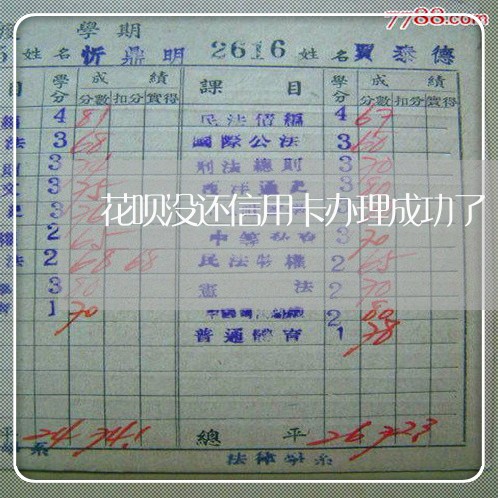 7788.com
學期
姓名 忻鼎明 2616 姓名 賈泰德
目 學分 成績 課目 學分 成績
分數 扣分 實得 分數 扣分 實得
4 81 民法債編 4 67
法 3 68 國際公法 3 60
3 刑法總則 3 70
文 3 75 3 80
花呗没还信用卡办理成功了
2 65 中等私布 3 70
法 2 68 68 民法物權 2 65
3 80 憲法 2 70
1 70 2 80
普通體育 1 78
平 24 74.1 總平 26 72.3
系 法律學系